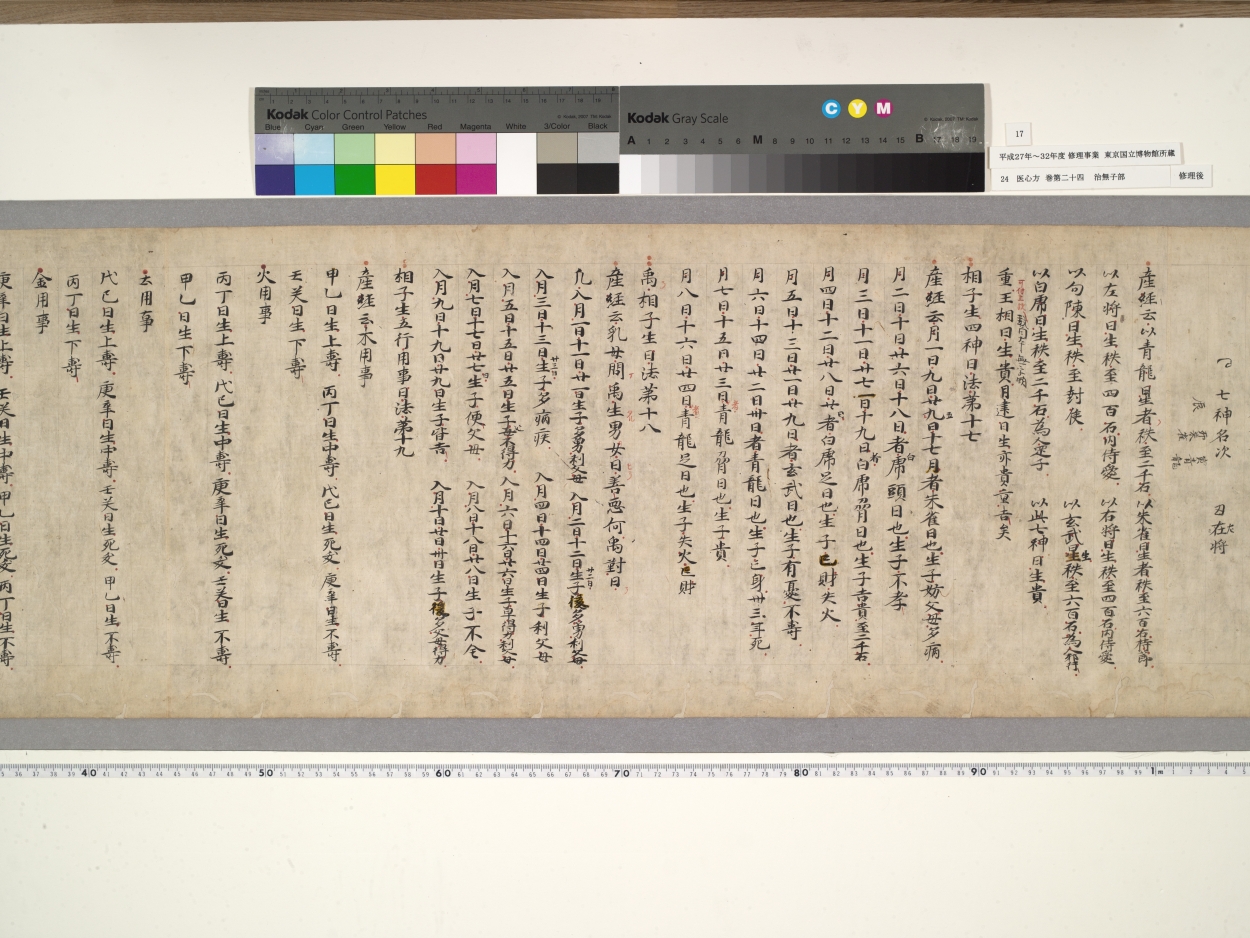 Kodak Color Control Patches
Blue Cyan Green Yellow Red Magenta White 3/Color Black
Kodak Gray Scale
C Y M
A 1 2 3 4 5 6 M 8 9 10 11 12 13 14 15 B 17 18 19
17
平成27年～32年度 修理事業 東京国立博物館所蔵
24 医心方 巻第二十四 治無子部 修理後
七神名次
産経云以青龍星者秩至二千石以朱雀星者秩至六百石侍郎
以左将日生秩至四百石内侍愛以右将日生秩至四百石内侍愛
以勾陳日生秩至封侯以玄武星秩至六百石為人
以白虎日生秩至二千石為 以此七神日生貴
重王相日生貴月遠日生亦貴 吉矣
相子生四神日法第十七
産経云月一日九日廿九日十七日者朱雀日也生子妨父母多病
月二日十日廿六日十八日者白虎頭日也生子不孝
月三日十一日廿七日十九日者白虎脅日也生子吉貴至二千石
月四日十二日廿八日 者白虎足日也生子亡財失火
月五日十三日廿一日廿九日者玄武日也生子有憂不寿
月六日十四日廿二日卅日者青龍日也生子亡身卅三年死
月七日十五日廿三日青龍脅日也生子貴
月八日十六日廿四日青龍足日也生子失火亡財
禹相子生日法第十八
産経云乳母問禹生男女日善悪何禹対曰
凡入月一日十一日廿一日生子多勇利父母 入月二日十二日廿二日生子 多勇利父母
入月三日十三日廿三日生子多病疾 入月四日十四日廿四日生子利父母
入月五日十五日廿五日生子 得力 入月六日十六日廿六日生子 得力利父母
入月七日十七日廿七日生子便父母 入月八日十八日廿八日生子不全
入月九日十九日廿九日生子 吉 入月十日廿日卅日生子 父母得力
相子生五行用事日法第十九
産経云木用事
甲乙日生上寿 丙丁日生中寿 戊己日生死父 庚辛日生不寿
壬癸日生下寿
火用事
丙丁日生上寿 戊己日生中寿 庚辛日生死父 壬癸日生不寿
甲乙日生下寿
土用事
戊己日生上寿 庚辛日生中寿 壬癸日生死父 甲乙日生不寿
丙丁日生下寿
金用事
庚辛日生上寿 壬癸日生中寿 甲乙日生死父 丙丁日生不寿
40 50 60 70 80 90 1m